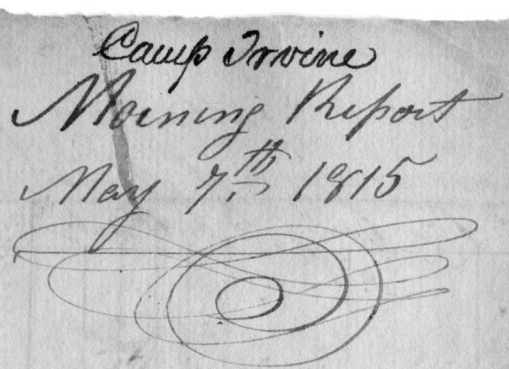 Camp Irvine
Morning Report
May 7th 1815